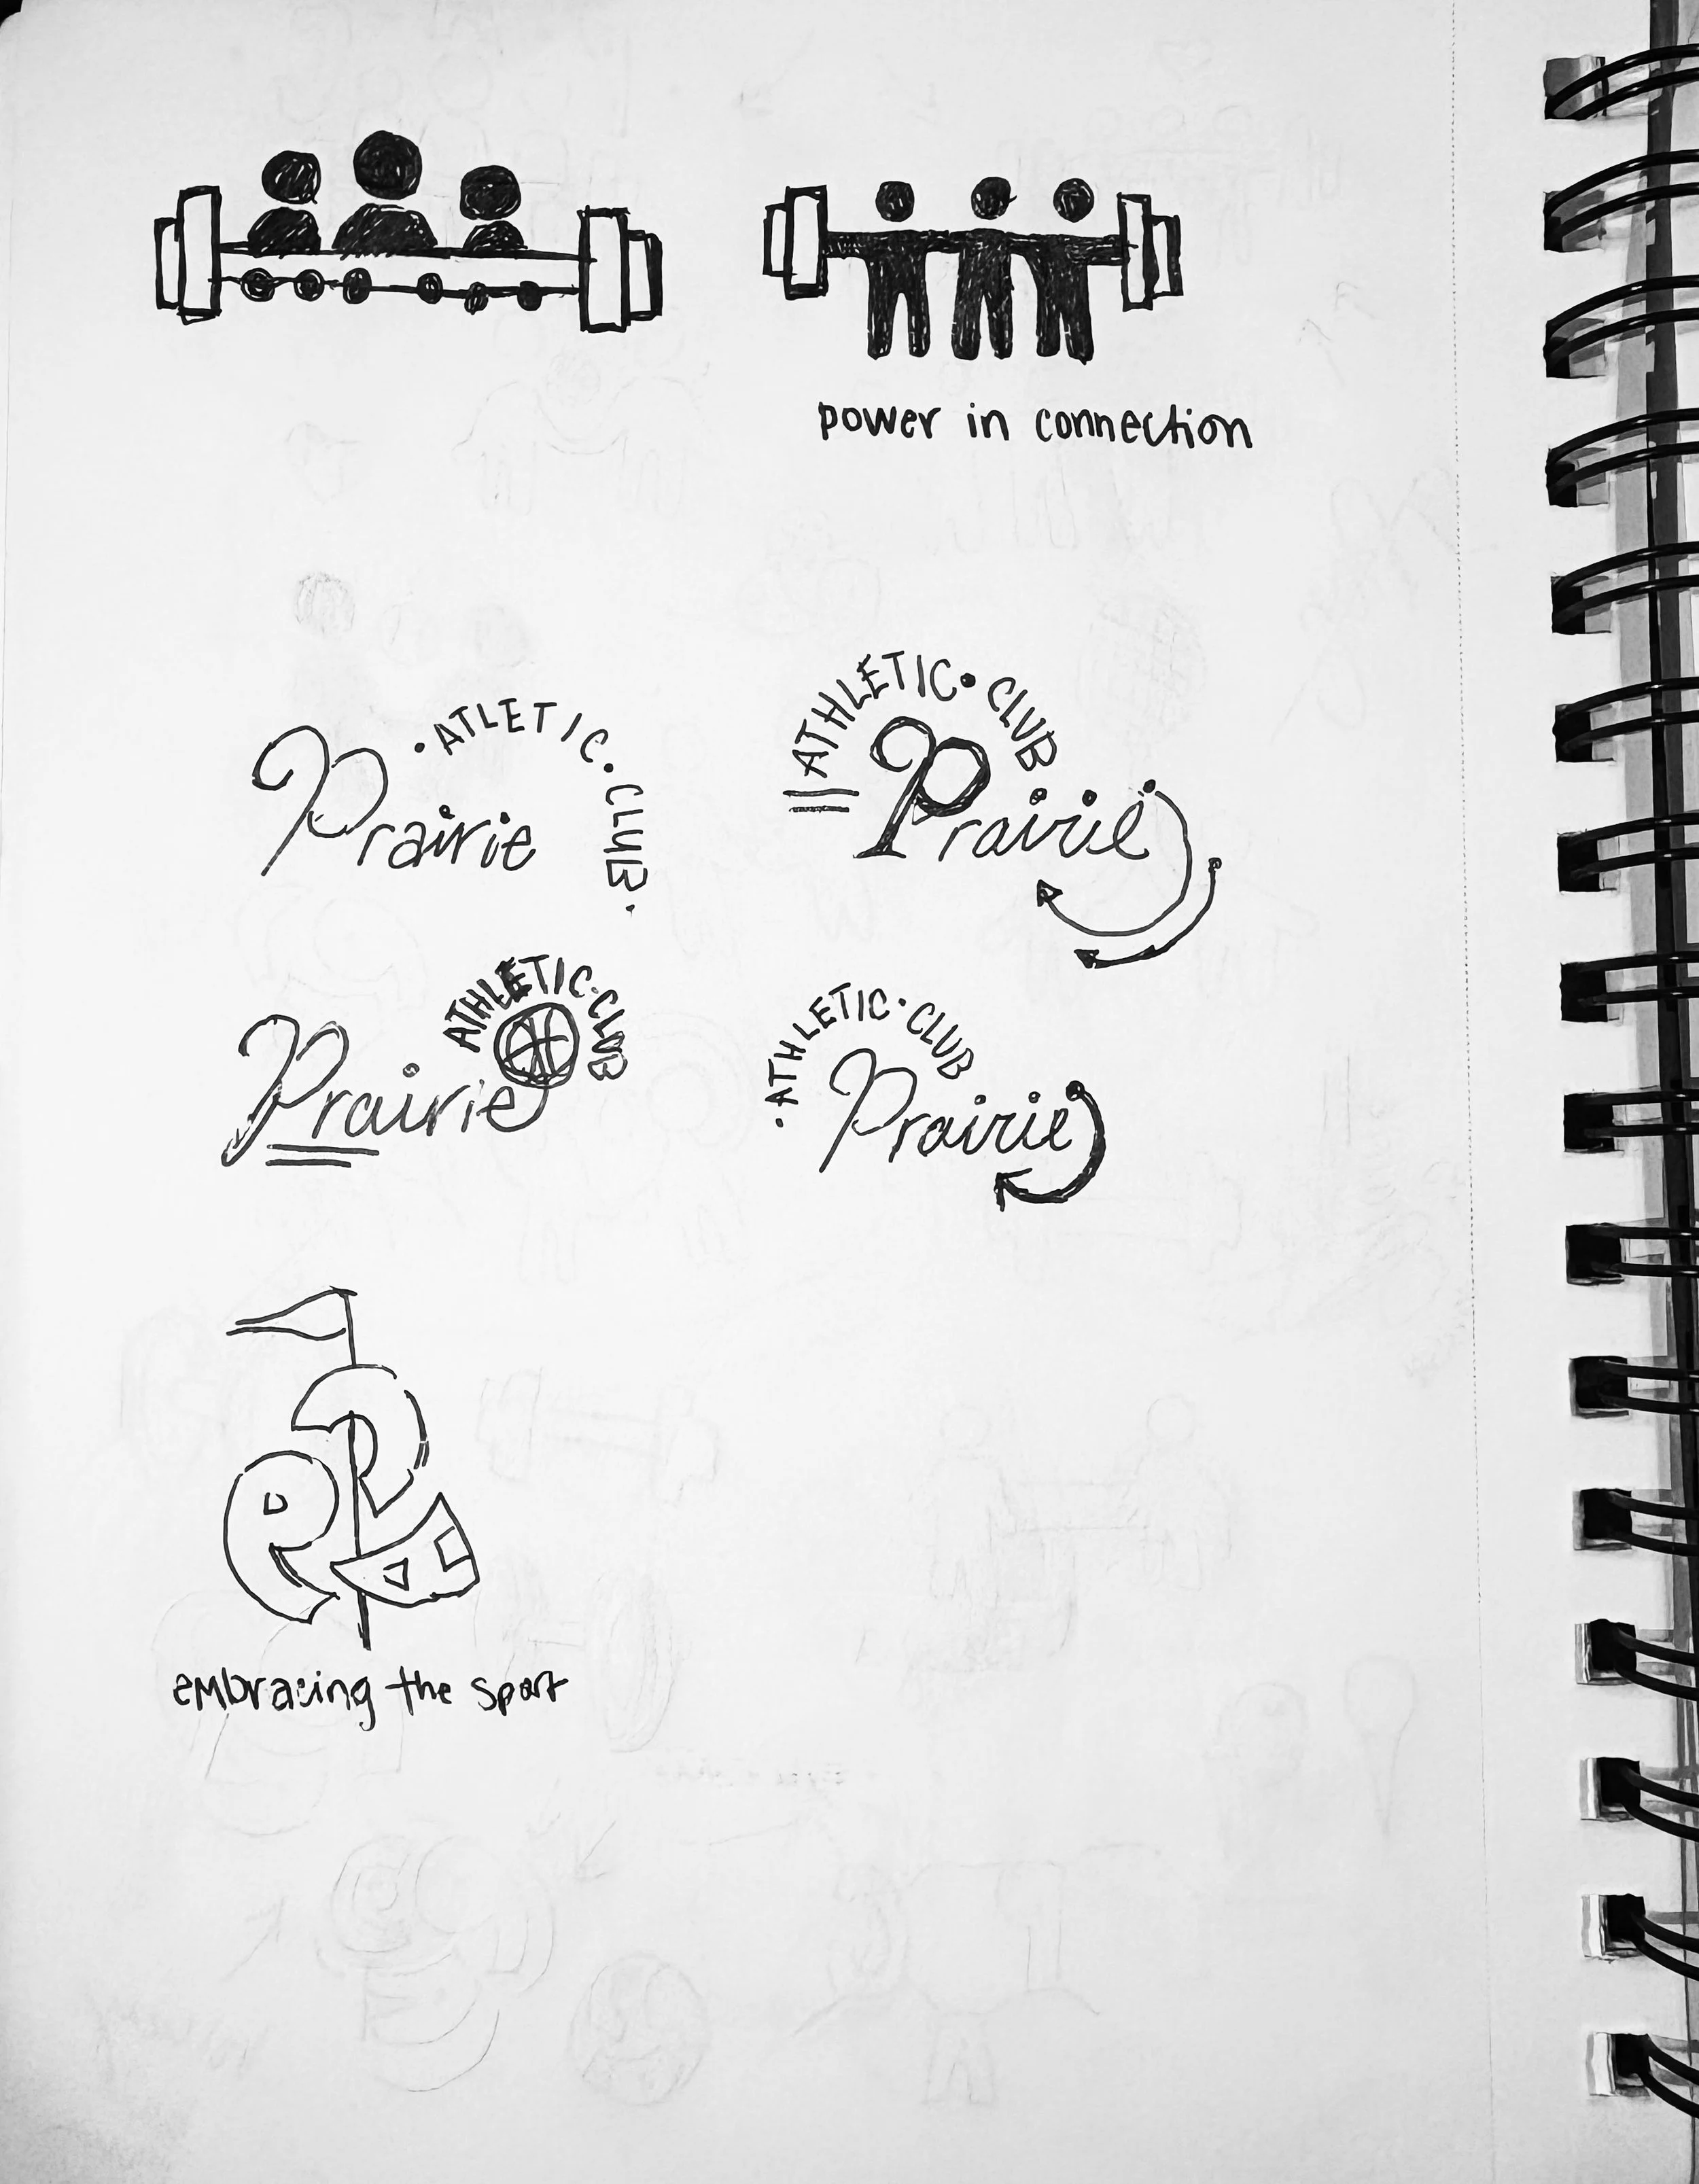 power in connection
Prairie
• ATLETIC • CLUB •
ATHLETIC • CLUB
Prairie
ATHLETIC • CLUB
Prairie
• ATHLETIC • CLUB
Prairie
embracing the sport